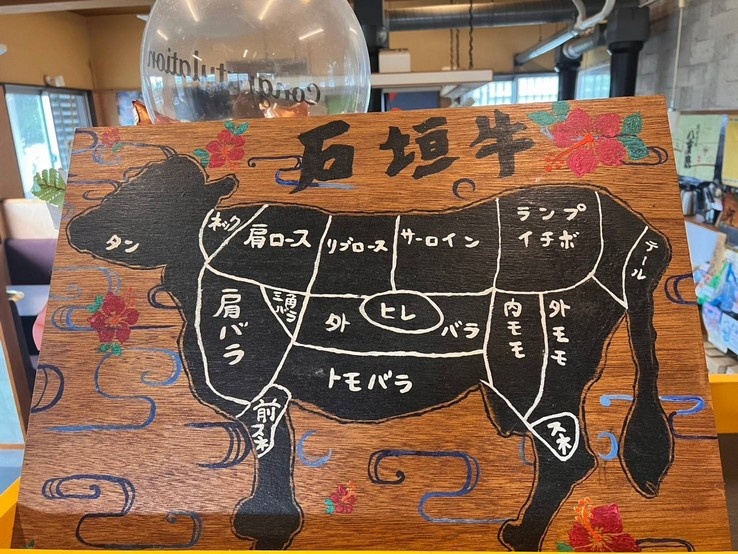 Congratulation
石垣牛
タン
ネック
肩ロース
リブロース
サーロイン
ランプ
イチボ
テール
肩バラ
三角バラ
外バラ
ヒレ
内モモ
外モモ
トモバラ
前スネ
スネ